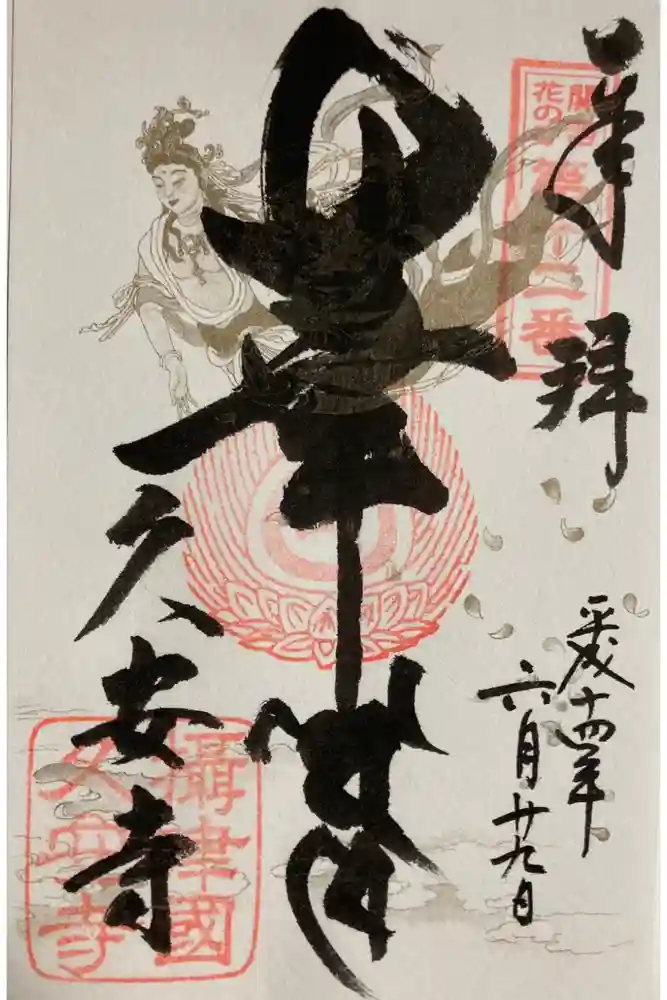 奉拝
平成十四年
六月廿九日
関西
花の寺
第十二番
久安寺
攝津國
久安寺